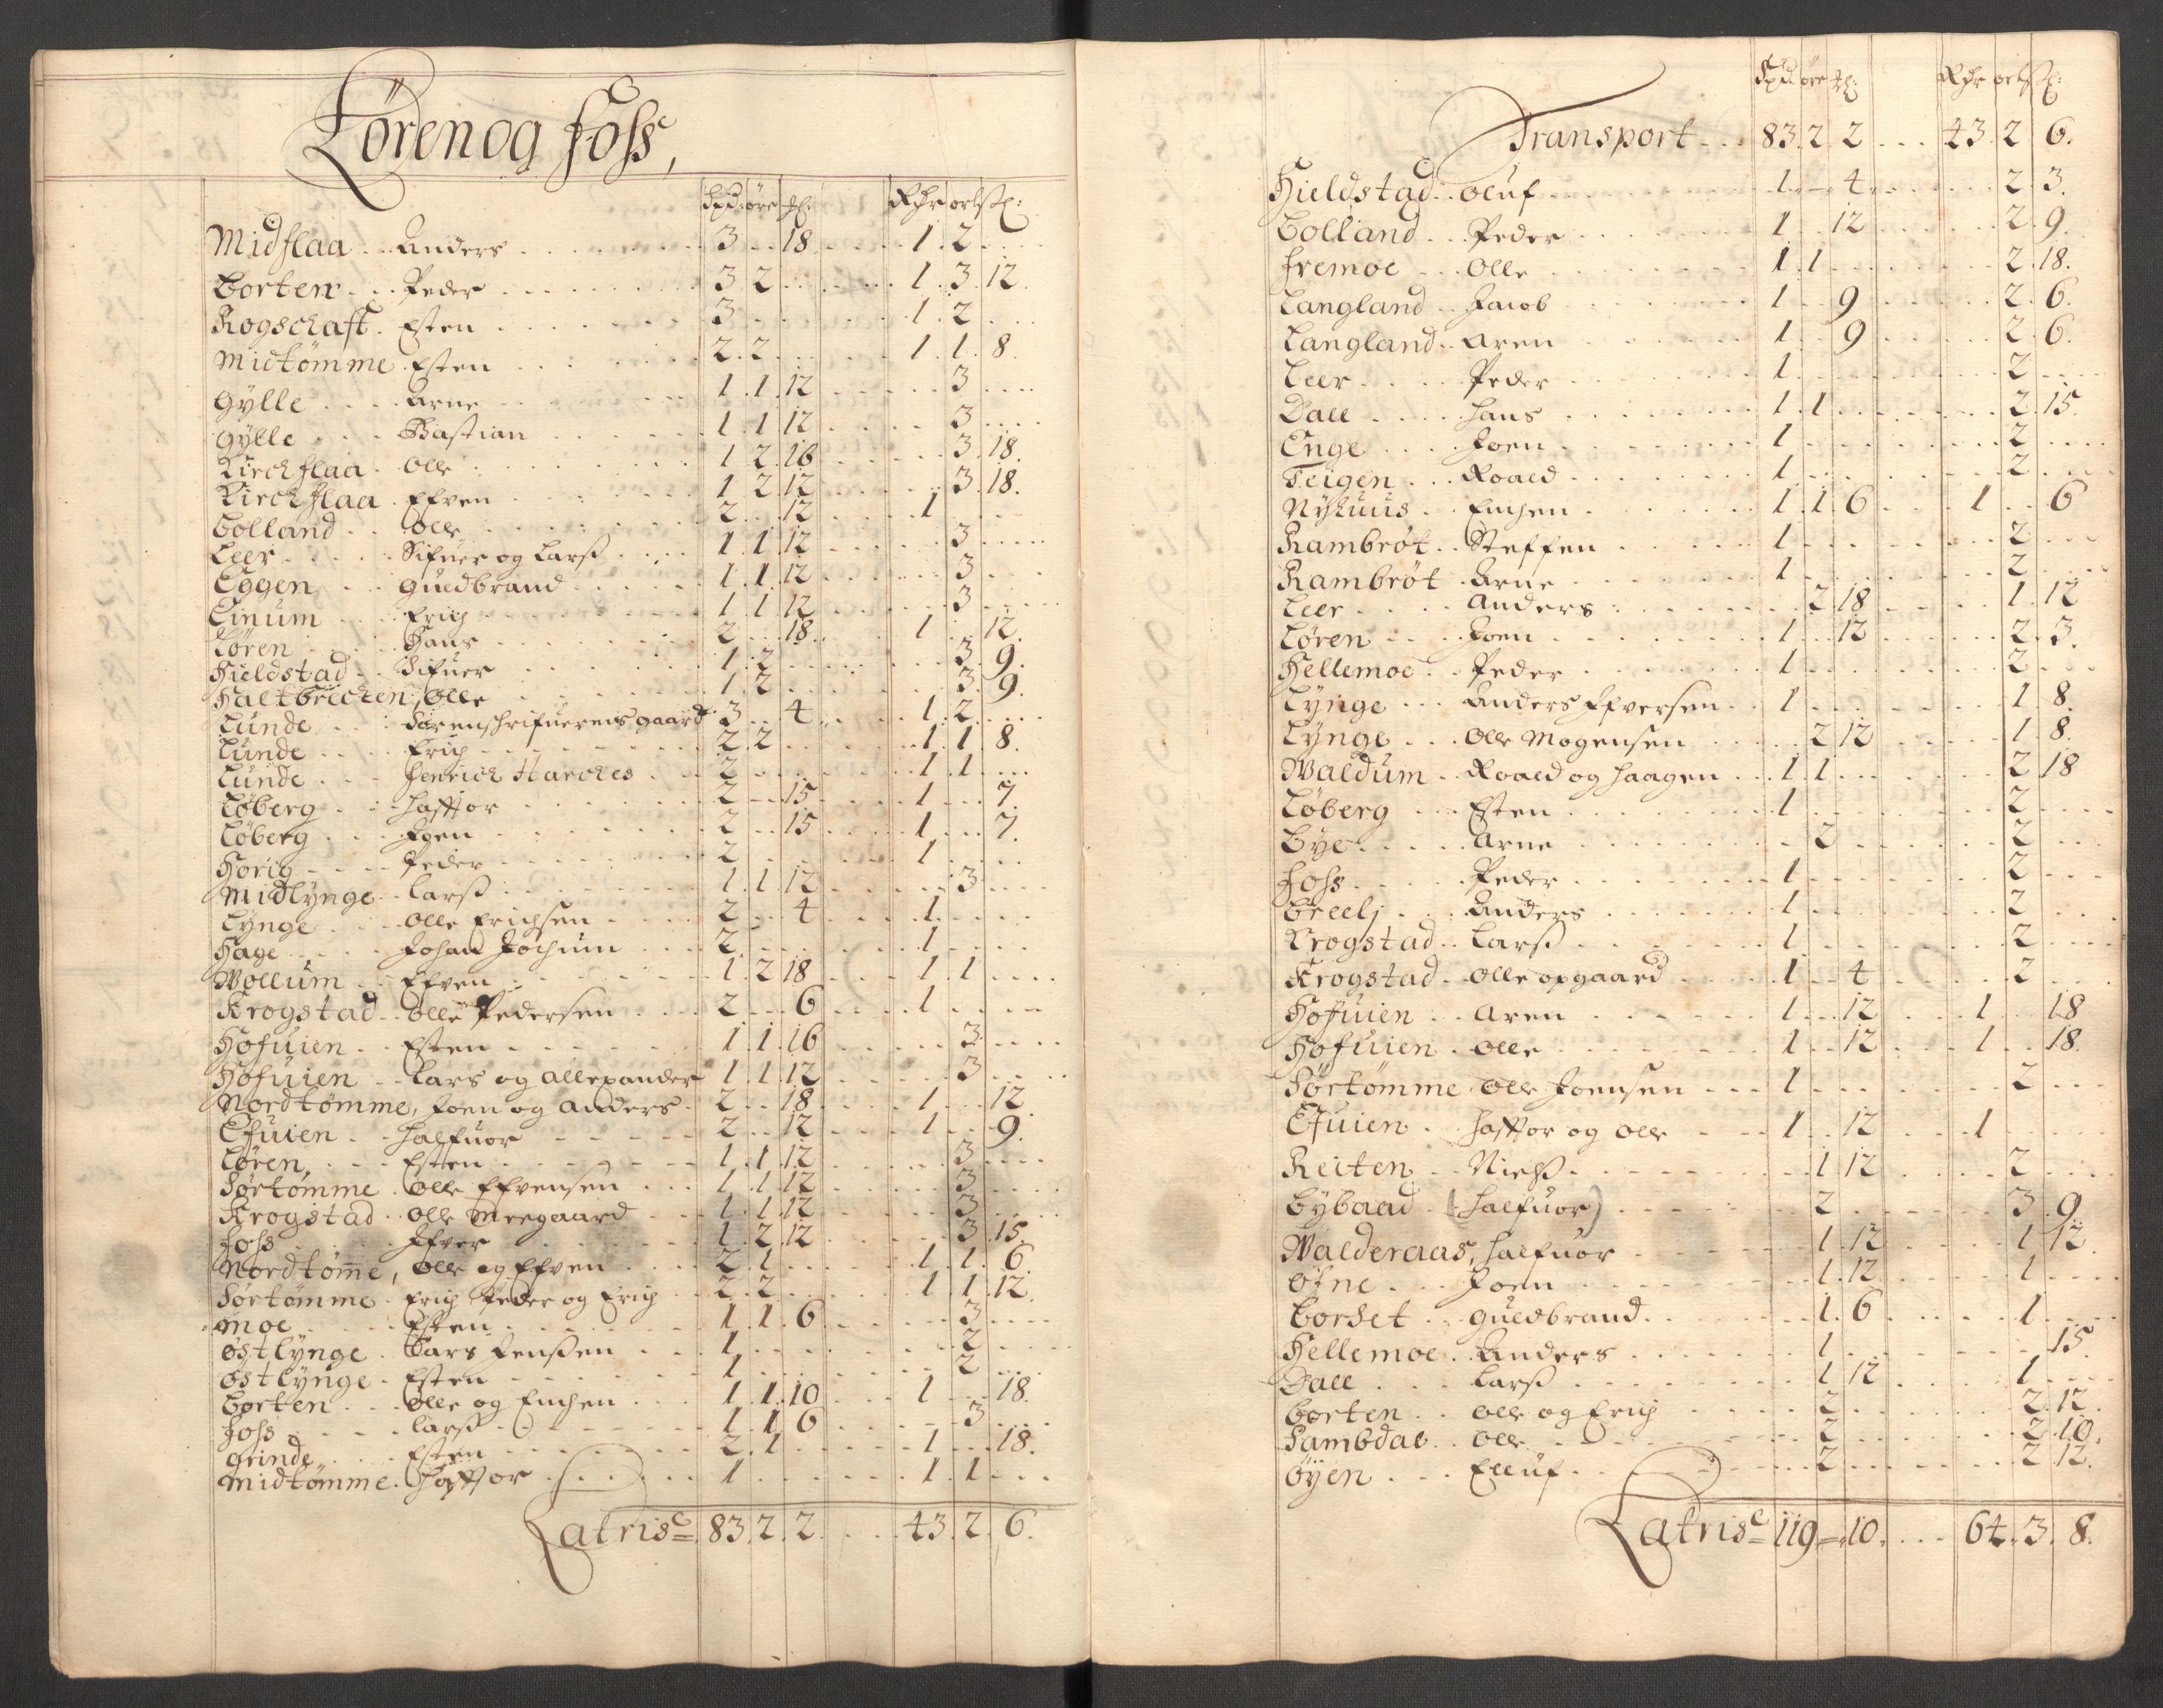 Lören og Foss,
Spd: öre ß: Rdr ort ß:
Midflaa Anders 3 18 1 2
Borten Peder 3 2 1 3 12
Rogschaft Esten 3 1 2
Midtömme Esten 2 2 1 1 8
Gylle Arne 1 1 12 3
Gylle Bastian 1 1 12 3
Kirchflaa Olle 1 2 16 3 18
Kirchflaa Efven 1 2 12 3 18
Bolland Olle 2 12 1
Leer Sifuer og Larß 1 1 12 3
Eggen Guldbrand 1 1 12 3
Linum Erich 1 1 12 3
Lören Hans 2 18 1 12
Hieldstad Sifuer 1 2 3 9
Haltbrecken, Olle 1 2 3 9
Lunde Sörenschrifuerens gaard 3 4 1 2
Lunde Erich 2 2 1 1 8
Lunde Henrich Harckes 2 1 1
Löberg Haffor 2 15 1 7
Löberg Joen 2 15 1 7
Horig Peder 2 1
Midlynge Larß 1 1 12 3
Lynge Olle Erichsen 2 4 1
Hage Johan Jochum 2 1
Wollum Efven 1 2 18 1 1
Krogstad Olle Pedersen 2 6 1
Hofuien Esten 1 1 16 3
Hofuien Lars og Allexander 1 1 12 3
Nordtömme, Joen og Anders 2 18 1 12
Efuien Halfuor 2 12 1 9
Lören Esten 1 1 12 3
Sörtömme Olle Efvensen 1 1 12 3
Krogstad Olle Neegaard 1 1 12 3
Foss Efver 1 2 12 3 15
Nordtöme, Olle og Efven 2 1 1 1 6
Sörtömme Erich Peder og Erich 2 2 1 1 12
Moe Esten 1 1 6 3
Östlynge Lars Jenßen 1 2
Östlynge Esten 1 2
Borten Olle og Einchen 1 1 10 1 18
Foss Larß 1 1 6 3
Grinde Esten 2 1 1 18
Midtömme Haffor 1 1 1
Latris 83 2 2 43 2 6
Spd: öre ß: Rdr ort ß:
Transport 83 2 2 43 2 6
Hieldstad Oluf 1 4 2 3
Bolland Peder 1 12 2 9
Fremoe Olle 1 1 2 18
Langland Jacob 1 9 2 6
Langland Aren 1 9 2 6
Leer Peder 1 2
Dall Hans 1 1 2 15
Enge Joen 1 2
Teigen Roald 1 2
Nyhuus Einchen 1 1 6 1 6
Rambröt Steffen 1 2
Rambröt Arne 1 2
Leer Anders 2 18 1 12
Lören Joen 1 12 2 3
Hellemoe Peder 1 2
Lynge Anders Efversen 1 1 8
Lynge Olle Mogensen 2 12 1 8
Waldum Roald og Haagen 1 1 2 18
Löberg Esten 1 2
Bye Arne 2 2
Foss Peder 1 2
Breelj Anders 1 2
Krogstad Larß 1 2
Krogstad Olle opgaard 1 4 2
Hofuien Aren 1 12 1 18
Hofuien Olle 1 12 1 18
Sörtömme Olle Joensen 1 2
Efuien Haffor og Olle 1 12 1
Reiten Nielß 1 12 2
Bybaad (Halfuor) 2 3 9
Walderaas, Halfuor 1 12 1 12
Öfne Joen 1 12 1
Borset Guldbrand 1 6 1
Hellemoe Anders 1 15
Dall Larß 1 12 1
Borten Olle og Erich 2 2 12
Sambdal Olle 2 2 10
Öyen Elluf 2 2 12
Latris 119 10 64 3 8